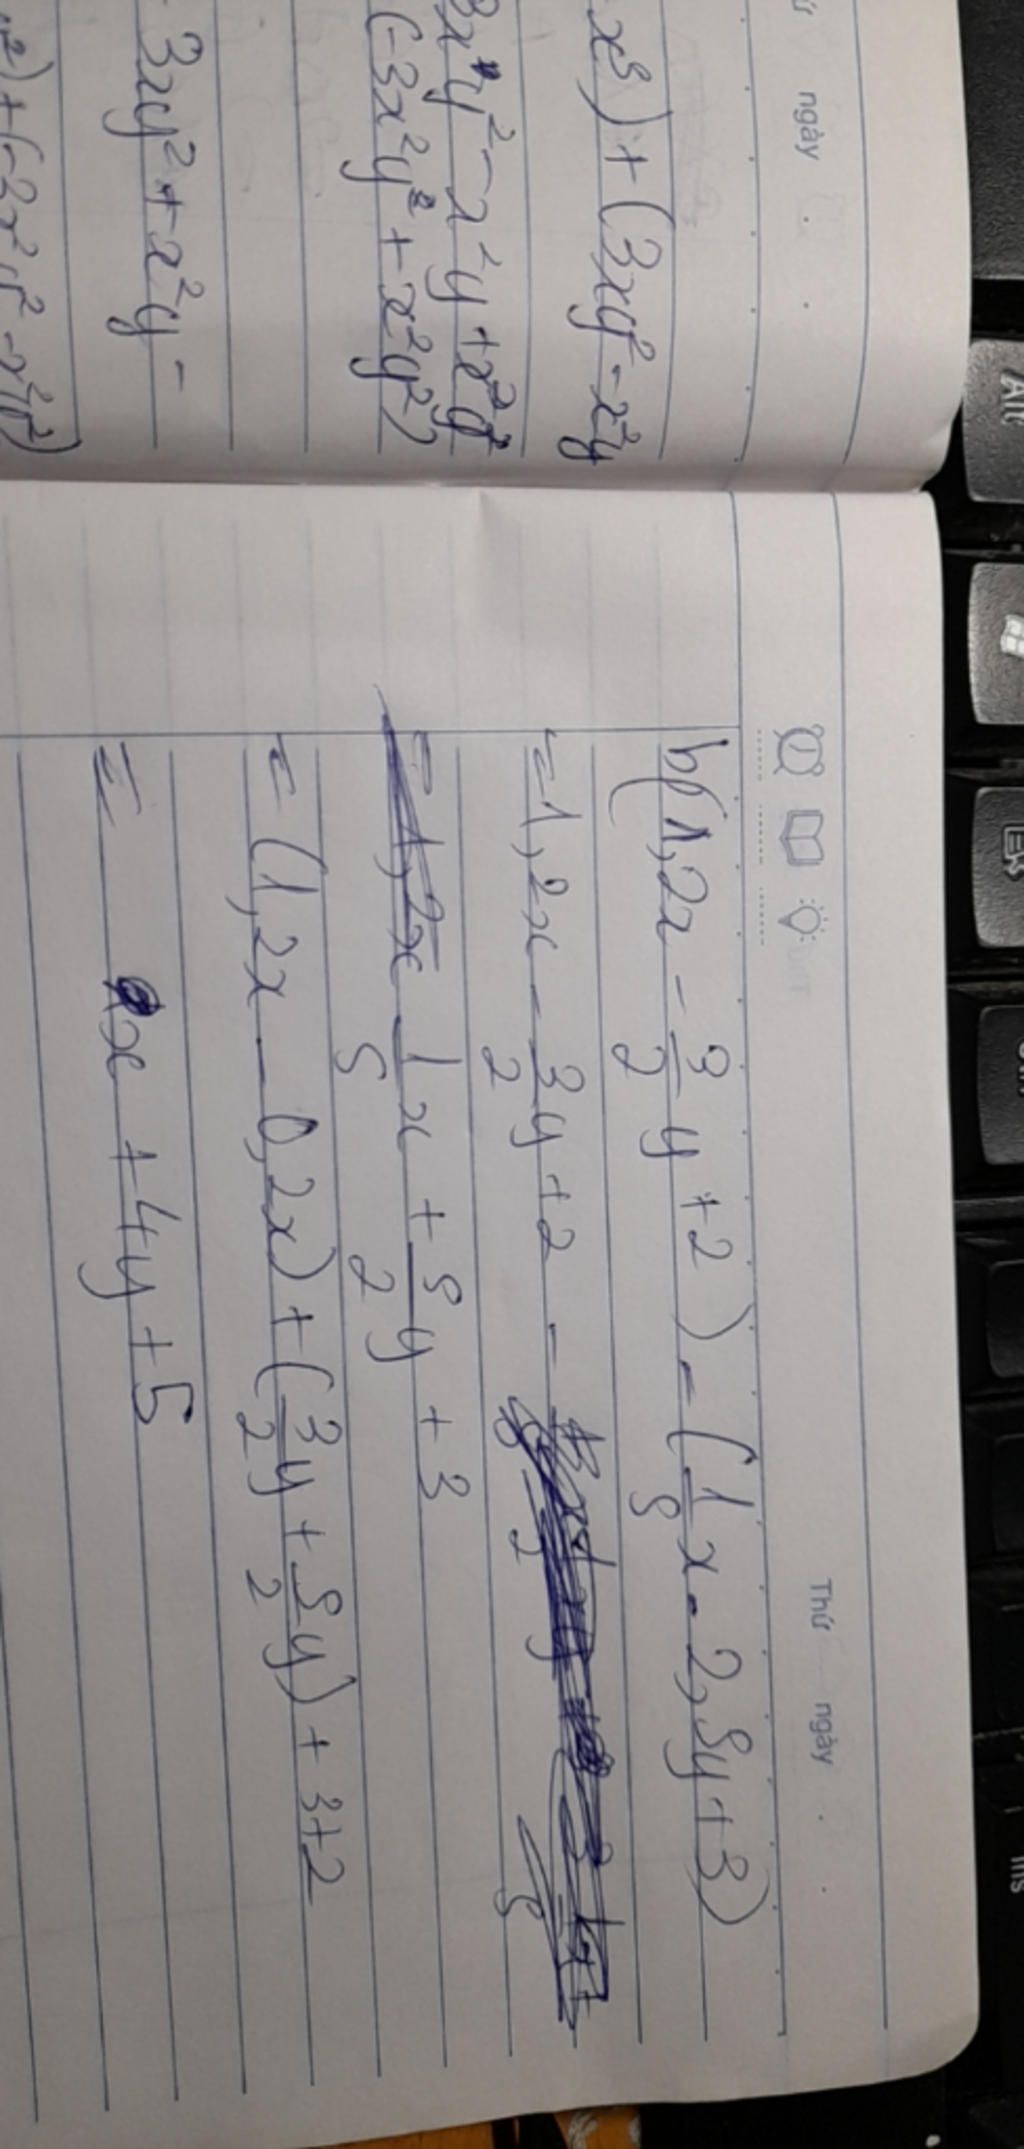 ngày
x⁵) + (3xy² - x²y
3x⁴y² - x²y + x²y²
(-3x²y² + x²y²)
3xy² + x²y -
) + (-3x²y² - x²y²)
Thứ ngày
b) (1,2x - 3/2 y + 2) - (1/5 x - 2,5y + 3)
= 1,2x - 3/2 y + 2 -
1/5 x + 5/2 y + 3
= (1,2x - 0,2x) + (3/2 y + 5/2 y) + 3+2
= x + 4y + 5
Alt
Ins